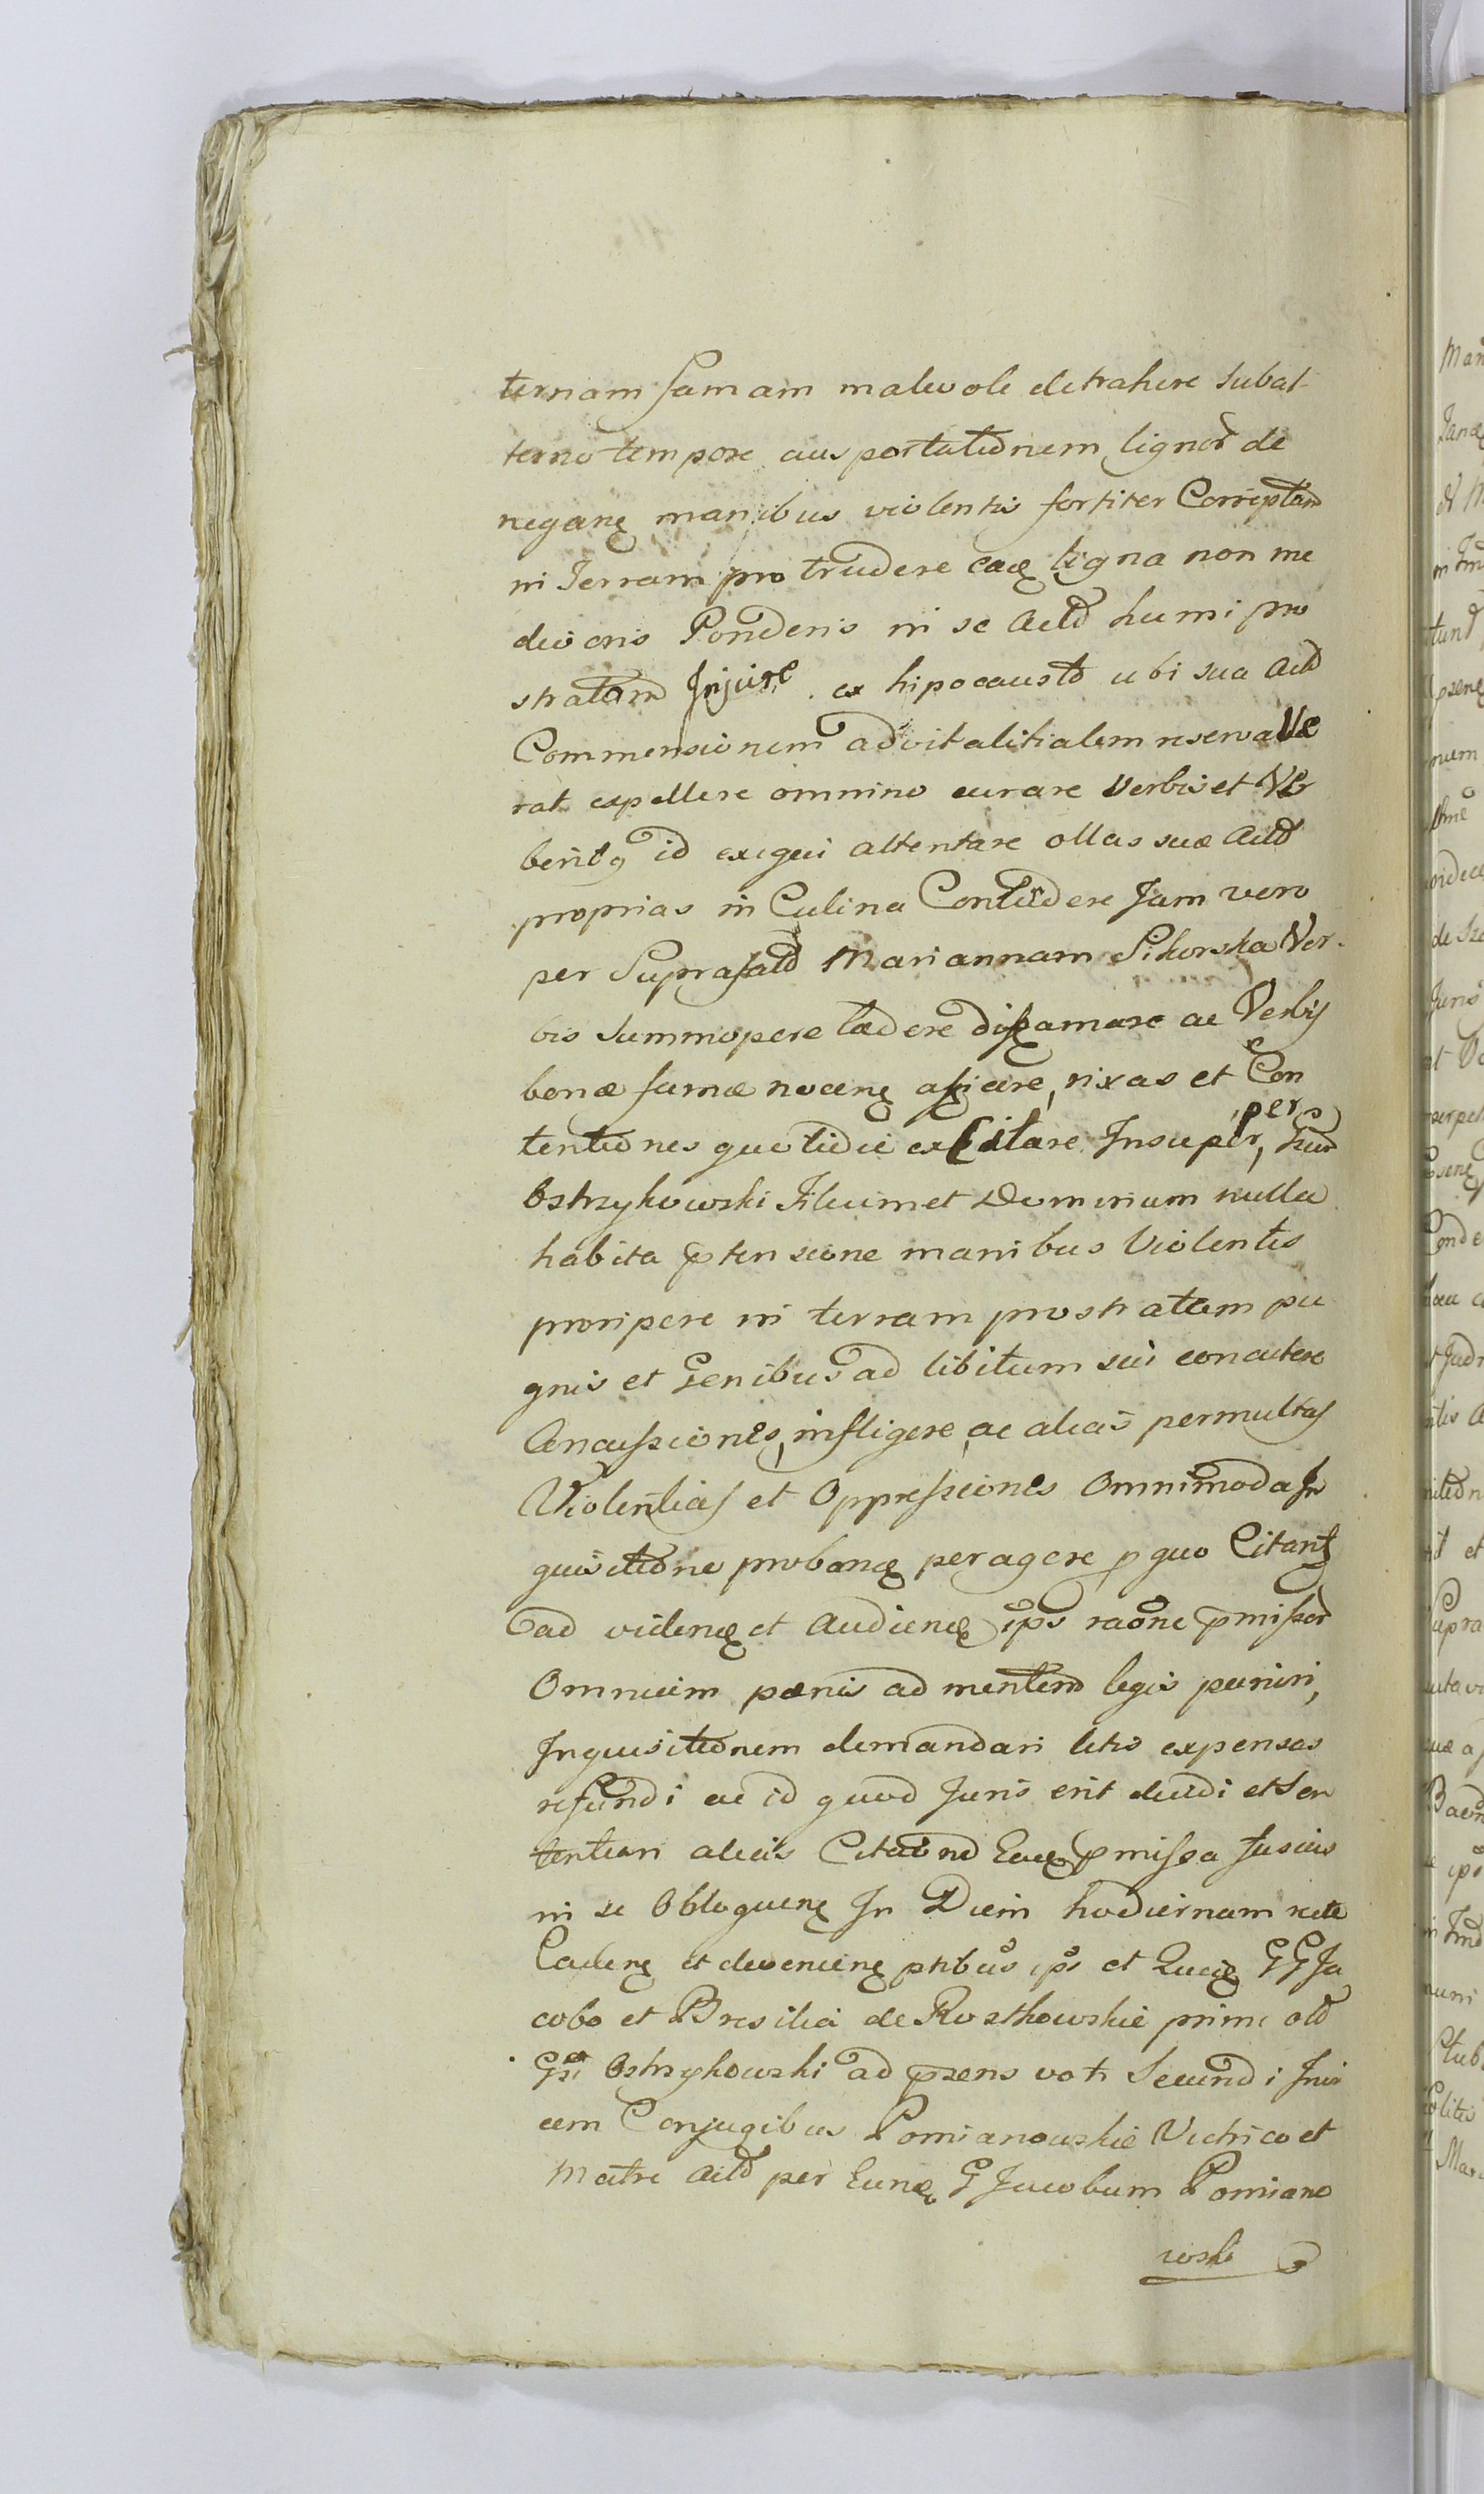 ternam famam malevole detrahere subal
terno tempore eius portationem lignor de
negane manibus violentis fortiter Correptam
in Terram pro trudere eaque ligna non me
diocris Ponderis in se Actd humi pro
stratam Injure ex hipocausto ubi sua Actd
Commensionem advitalitialem reservave
rat expellere omnino curare Verbis et Ver
beribq id exequi attentare ollas suæ Actd
proprias in Culina Contudere Jam vero
per Suprafatd Mariannam Sikorska Ver-
bis summopere lædere diffamare ac Verbis
bonæ famæ nocene afficere, rixas et Con
tentiones quotidie exCitare Insuper, per
Ostrzykowski Filium et Dominum nulla
habita ptensione manibus Violentis
proripere in terram prostratam pu
gnis et Genibus ad libitum sui concutere
Concussiones, infligere, ac alias permultas
Violentias et Oppressiones Omnimoda In
quisitione probane peragere p quo Citant
ad videne et Audiene ips raone pmissor
Omnium pænis ad mentem legis puniri,
Inquisitionem demandari litis expensas
refundi ac id quod Juris erit decidi et Sen
tentiari alias Citaone Eaque pmissa fusius
in se Obloquene In Diem hodiernam rite
Cadene et deveniene ptibus ips et Quidem GG Ja
cobo et Bresilia de Rostkowskie primi old
Gsi Ostrzykowski ad psens voti Secundi Invi
cem Conjugibus Pomianowskie Victrico et
Matre Actd per Eunde G Jacobum Pomiano
wski